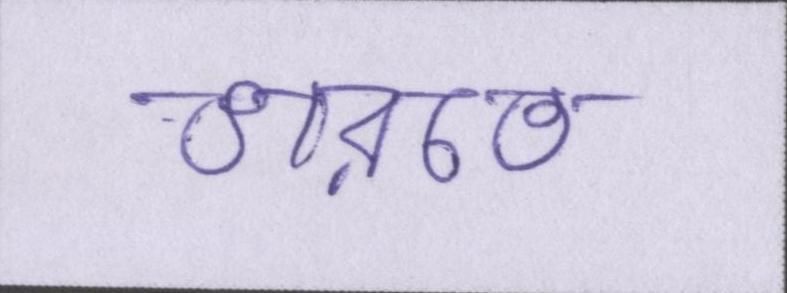 ভারতে